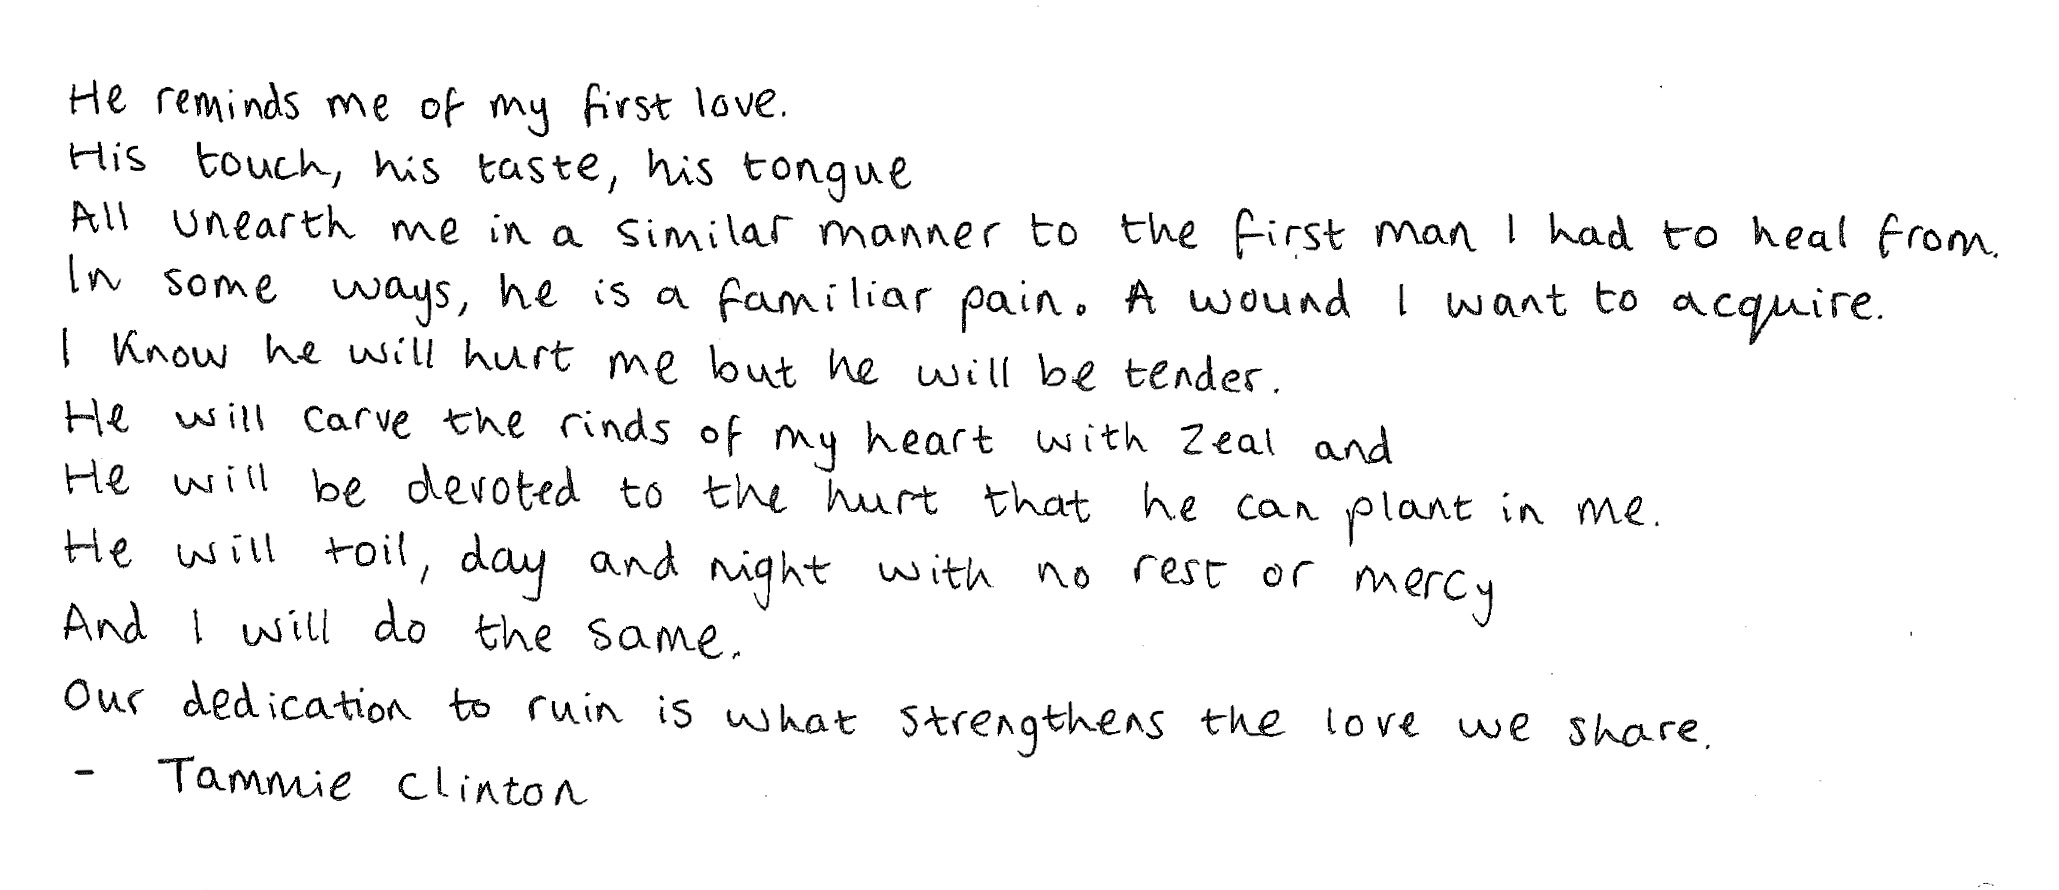 He reminds me of my first love.
His touch, his taste, his tongue
All unearth me in a similar manner to the first man I had to heal from.
In some ways, he is a familiar pain. A wound I want to acquire.
I know he will hurt me but he will be tender.
He will carve the rinds of my heart with zeal and
He will be devoted to the hurt that he can plant in me.
He will toil, day and night with no rest or mercy
And I will do the same.
Our dedication to ruin is what strengthens the love we share.
- Tammie Clinton